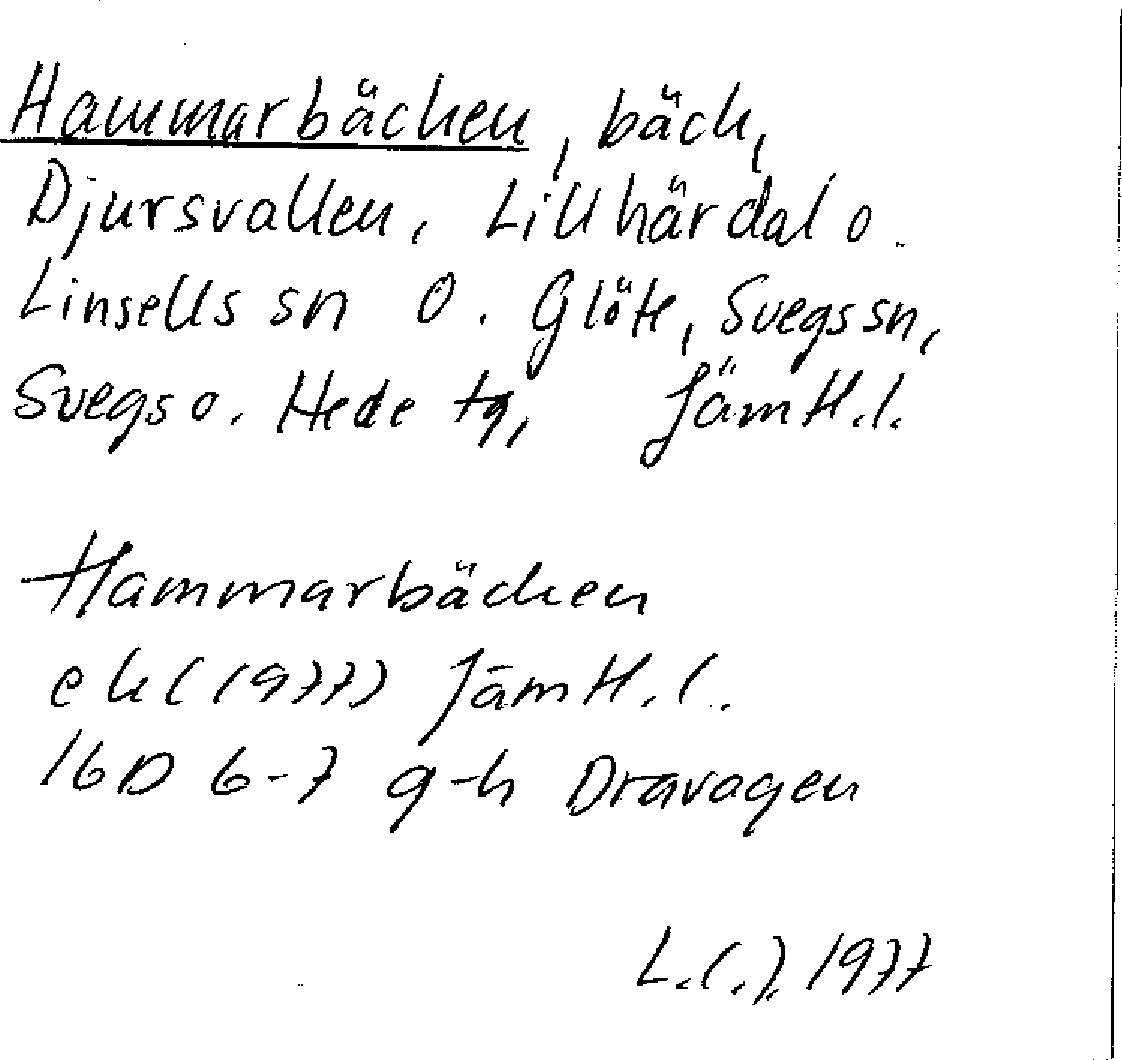 Hammarbäcken, bäck,
Djursvallen, Lillhärdal o.
Linsells sn o. Glöte, Svegs sn,
Svegs o. Hede tg, Jämtl.l.
Hammarbäcken
ek (1977) Jämtl.l.
16D 6-7 g-h Dravagen
1977